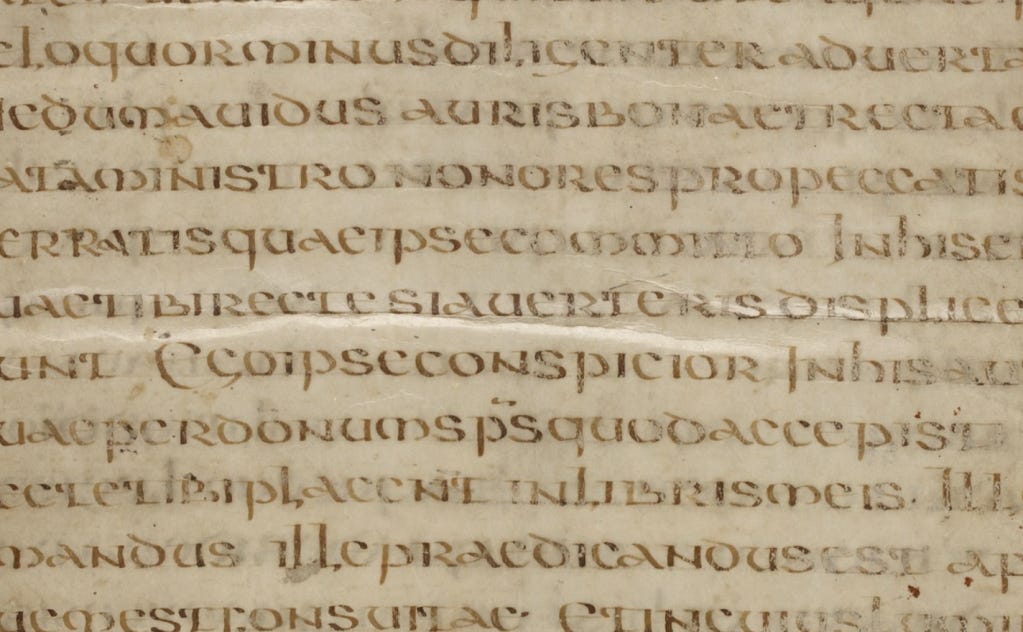 eloquorminusdiligenter aduerta
nedumauidus aurisbonaetrectac
ataministro nonorespropeccatis
erratisquaeipsecommitto Inhise
uaetibirectesiauerteris displice
unt Egoipseconspicior Inhisau
uaeperdonumspsquodaccepist
ectetibiplacent inlibrismeis. Ill
mandus illepraedicandusest ap
uemestfonsuitae. Etincuiuslumin